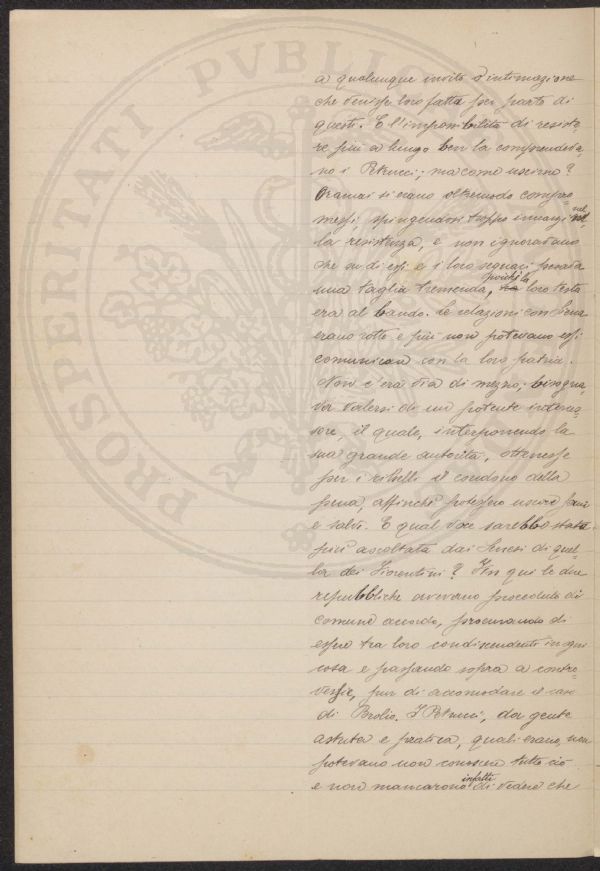 PROSPERITATI PVBLICAE
a qualunque invito d'intimazione
che venisse loro fatta per parte di
questi. E l'impossibilità di resiste-
re più a lungo ben la comprendeva-
no i Petrucci; ma come uscirne?
Oramai si erano oltremodo compro-
messi, spingendosi troppo innanzi nel-
la resistenza, e non ignoravano
che su di essi e i loro seguaci pesava
una taglia tremenda, poichè la loro testa
era al bando. Le relazioni con Siena
erano rotte e più non potevano essi
comunicare con la loro patria.
Non c'era via di mezzo; bisogna-
va valersi di un potente interces-
sore, il quale, interponendo la
sua grande autorità, ottenesse
per i ribelli il condono della
pena, affinchè potessero uscire sani
e salvi. E qual voce sarebbe stata
più ascoltata dai Senesi di quel-
la dei Fiorentini? Fin qui le due
repubbliche avevano proceduto di
comune accordo, procurando di
essere tra loro condiscendenti in ogni
cosa e passando sopra a contro-
versie, pur di accomodare il caso
di Brolio. I Petrucci, da gente
astuta e pratica, quali erano, non
potevano non conoscere tutto ciò
e non mancarono infatti di vedere che